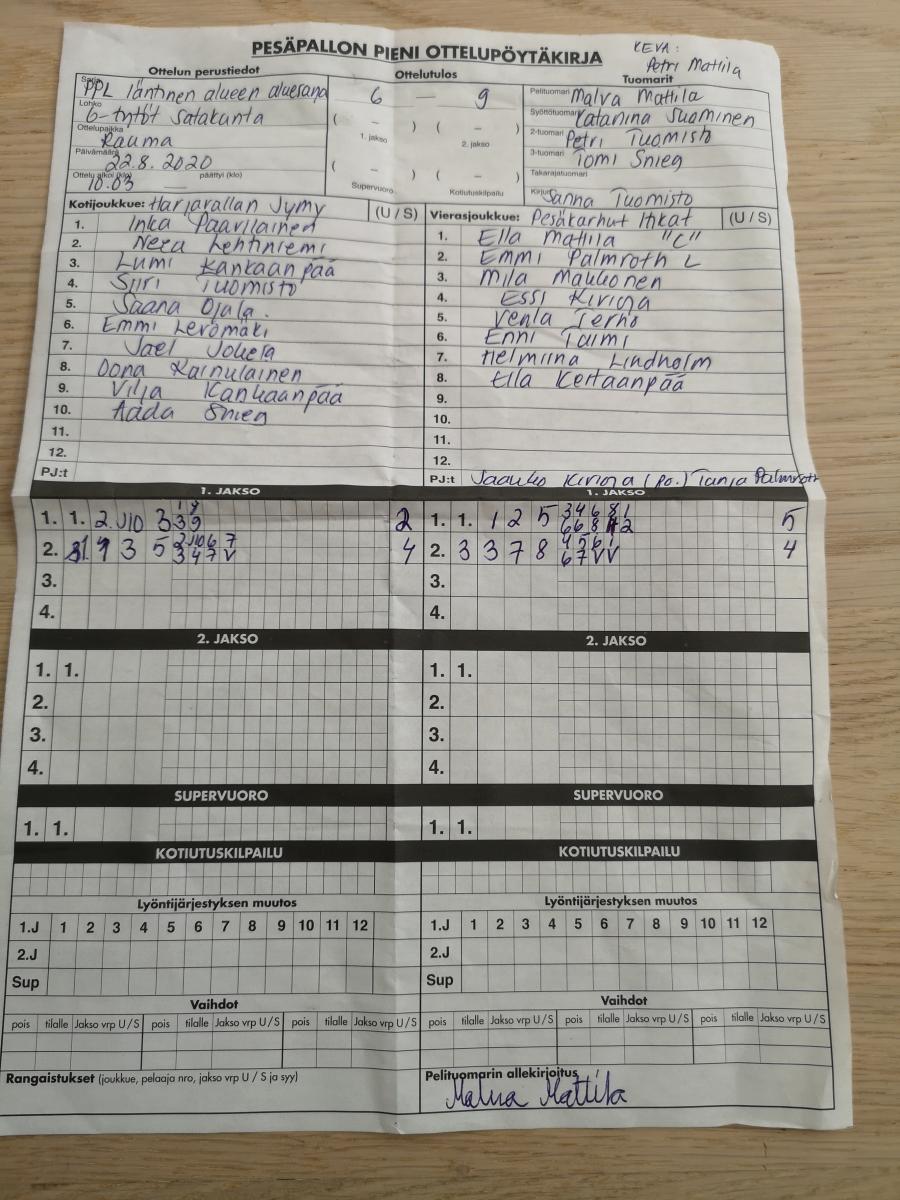 PESÄPALLON PIENI OTTELUPÖYTÄKIRJA
KEVA:
Petri Mattila
Ottelun perustiedot
Ottelutulos
Tuomarit
Sarja PPL läntinen alueen aluesarja
Lohko 6-tytöt Satakunta
Ottelupaikka Rauma
Päivämäärä 22.8.2020
Ottelu alkoi (klo) 10.03 päättyi (klo) —
6 — 9
( – ) ( – )
1. jakso 2. jakso
( – ) ( – )
Supervuoro Kotiutuskilpailu
Pelituomari Malva Mattila
Syöttötuomari Katariina Suominen
2-tuomari Petri Tuomisto
3-tuomari Tomi Snieg
Takarajatuomari
Kirjuri Sanna Tuomisto
Kotijoukkue: Harjavallan Jymy (U / S)
1. Inka Paavilainen
2. Neea Lehtiniemi
3. Lumi Kankaanpää
4. Siiri Tuomisto
5. Saana Ojala.
6. Emmi Levomäki
7. Jael Jokela
8. Oona Kainulainen
9. Vilja Kankaanpää
10. Aada Snieg
11.
12.
PJ:t
Vierasjoukkue: Pesäkarhut Hkat (U / S)
1. Ella Mattila "C"
2. Emmi Palmroth L
3. Mila Maukonen
4. Essi Kivioja
5. Venla Terho
6. Enni Taimi
7. Helmiina Lindholm
8. Ella Kertaanpää
9.
10.
11.
12.
PJ:t Jaakko Kivioja (po.) Tanja Palmroth
1. JAKSO
1. 1. 2 J10 3 3 9 2
2. 1 3 5 4
3.
4.
1. JAKSO
1. 1. 1 2 5 3 4 6 8 1 5
2. 3 3 7 8 4 5 6 1 4
6 7 V V
3.
4.
2. JAKSO
1. 1.
2.
3.
4.
2. JAKSO
1. 1.
2.
3.
4.
SUPERVUORO
1. 1.
SUPERVUORO
1. 1.
KOTIUTUSKILPAILU
KOTIUTUSKILPAILU
Lyöntijärjestyksen muutos
1.J 1 2 3 4 5 6 7 8 9 10 11 12
2.J
Sup
Lyöntijärjestyksen muutos
1.J 1 2 3 4 5 6 7 8 9 10 11 12
2.J
Sup
Vaihdot
pois tilalle Jakso vrp U / S pois tilalle Jakso vrp U / S pois tilalle Jakso vrp U / S
Vaihdot
pois tilalle Jakso vrp U / S pois tilalle Jakso vrp U / S pois tilalle Jakso vrp U / S
Rangaistukset (joukkue, pelaaja nro, jakso vrp U / S ja syy)
Pelituomarin allekirjoitus
Malva Mattila